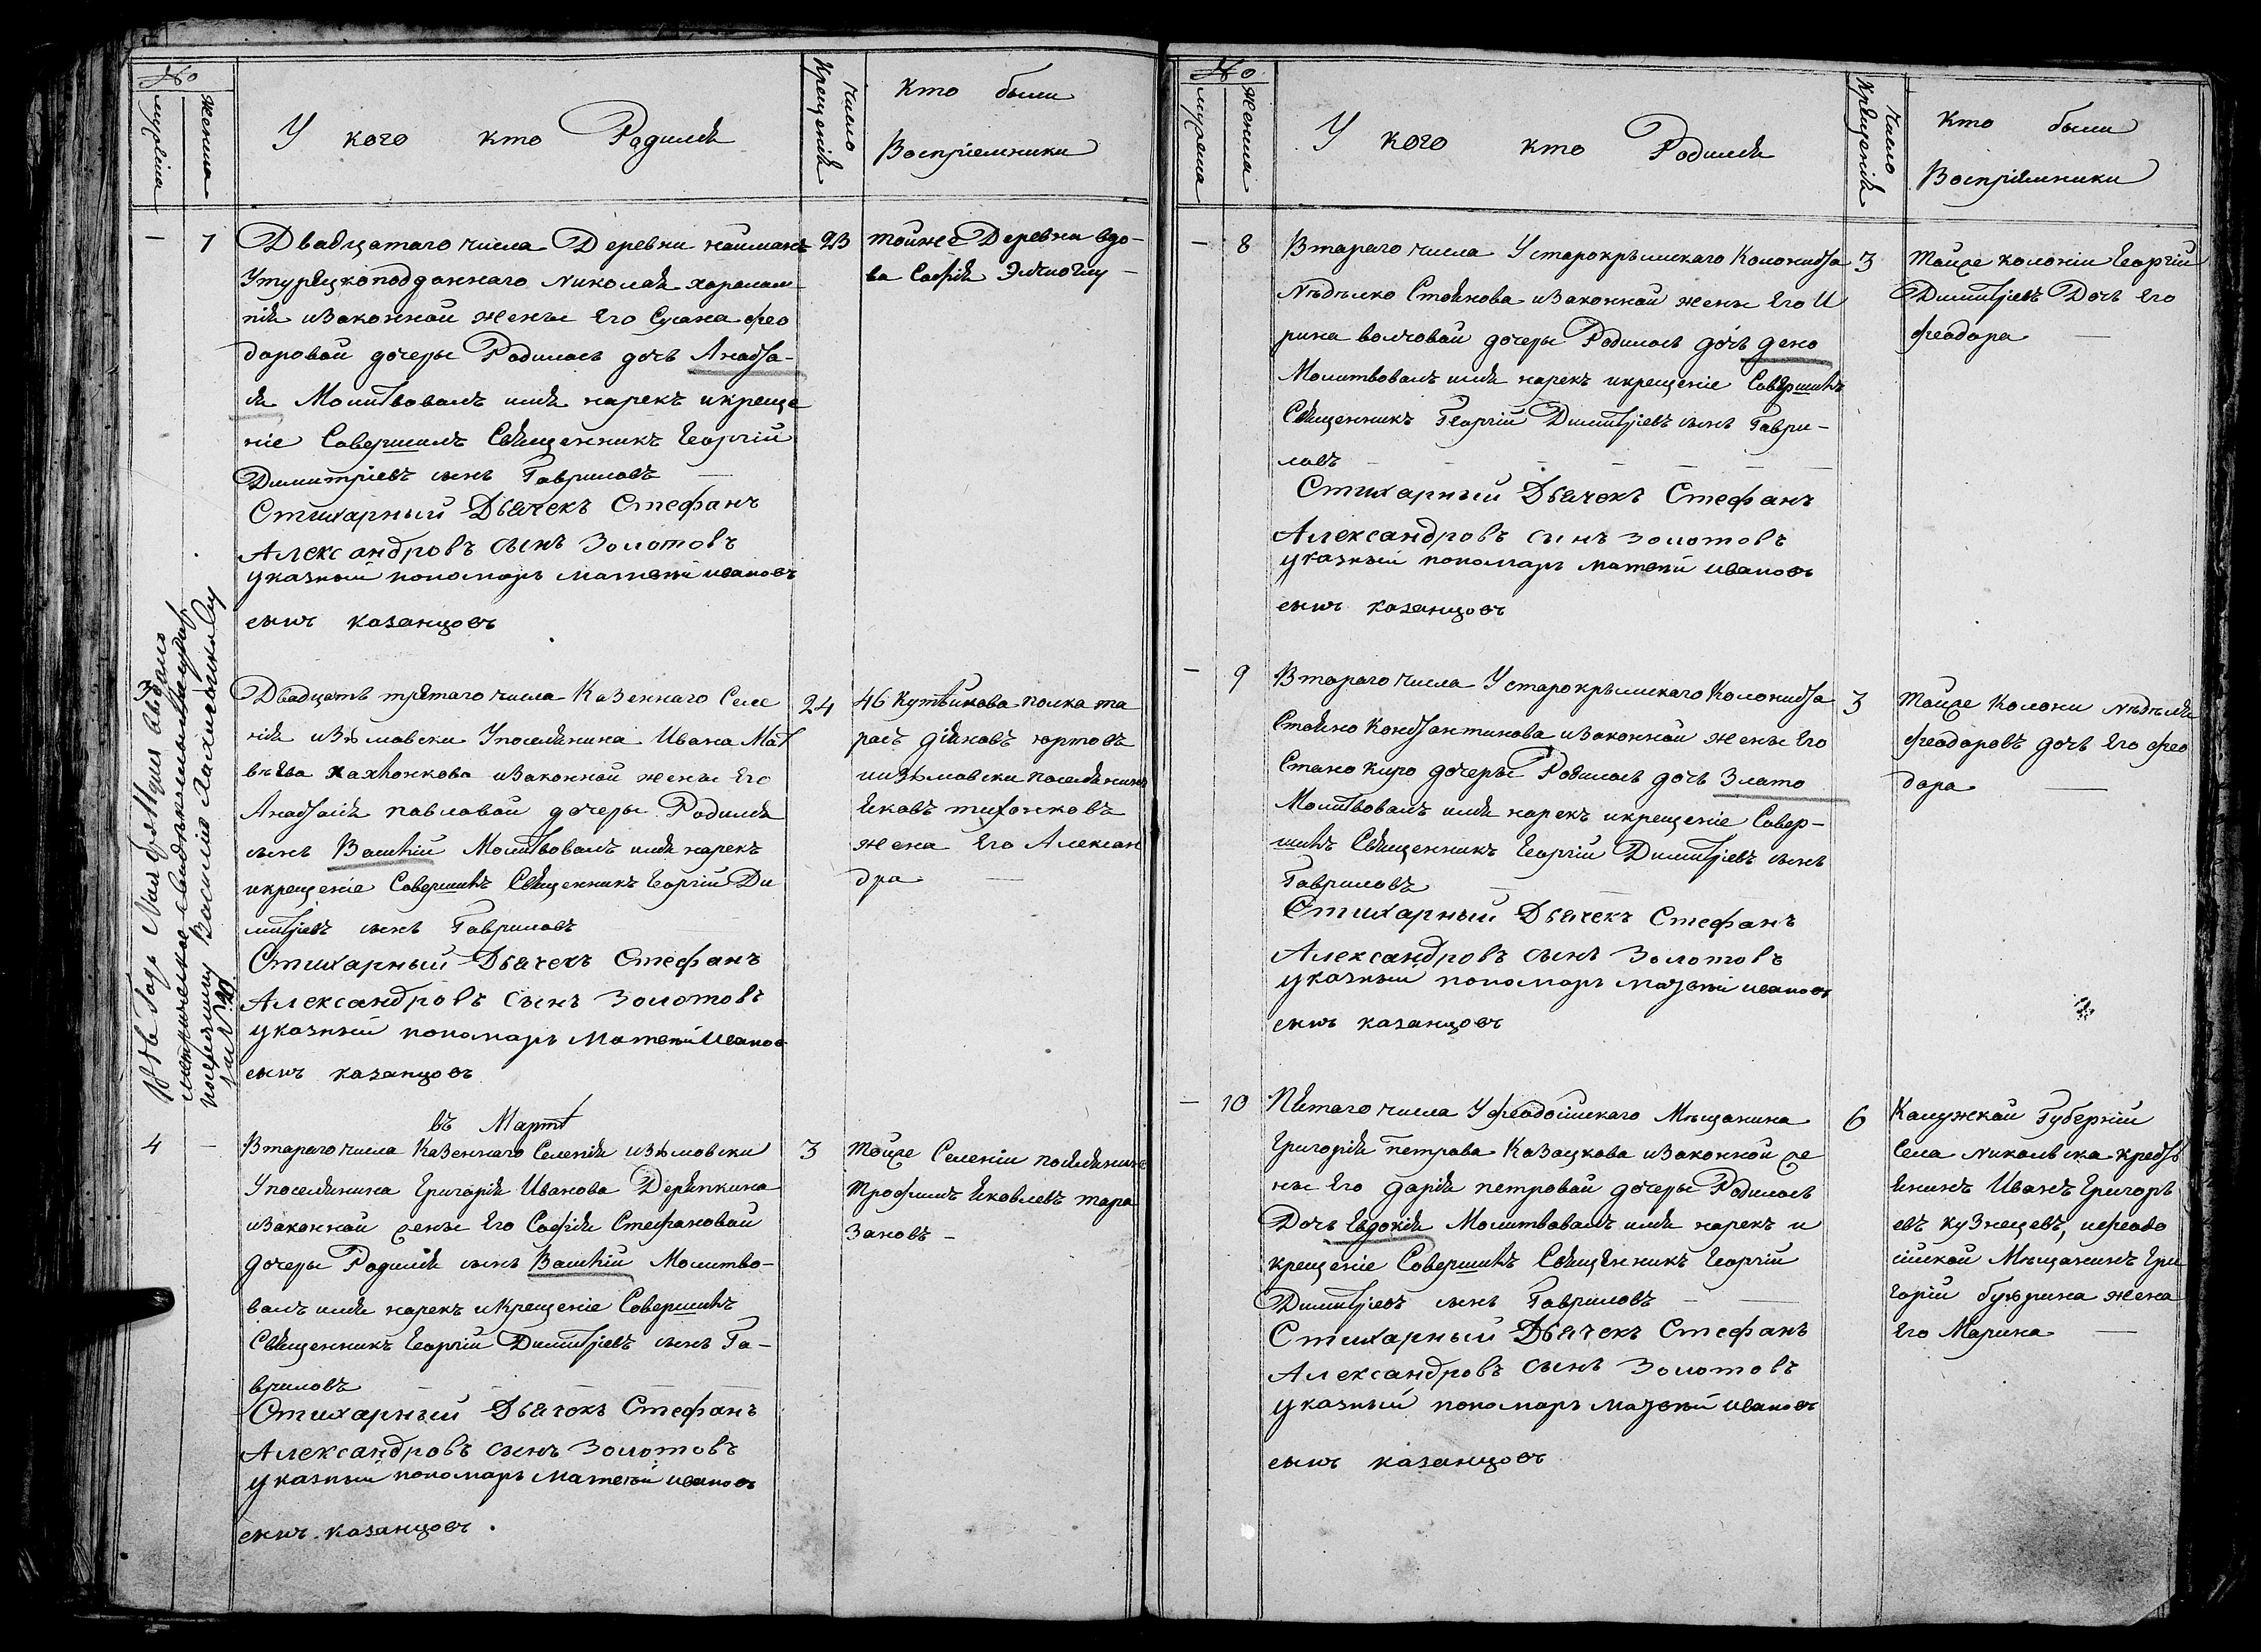 №
мужеска
женска
У кого кто Родился
число
Крещенія
Кто были
Воспріемники
— 7
Двадцатаго числа Деревни найманъ
Утурецкоподданнаго Николая харалам
пія изаконной жены Его Сусана фео
доровой дочеры Родилась дочь Анаста-
сія Молитвовалъ имя нарекъ икреще
ніе Совершилъ Священникъ Георгій
Димитріевъ сынъ Гавриловъ —
Стихарный Дьячекъ Стефанъ
Александровъ сынъ Золотовъ
указный пономарь матвей ивановъ
сынъ казанцовъ
23
тойже Деревни вдо-
ва Софія —
3
Двадцать третаго числа Казеннаго Селе
нія изюмовски Упоселянина Ивана Мат
вѣева изаконной жены Его
Анастасія павловой дочеры Родился
сынъ Василій Молитвовалъ имя нарекъ
икрещеніе Совершилъ Священникъ Георгій Ди
митріевъ сынъ Гавриловъ
Стихарный Дьячекъ Стефанъ
Александровъ сынъ Золотовъ
указный пономарь Матвей Иванов
сынъ казанцовъ
24
46 полка та
расъ юртовъ
изюмовски поселянинъ
Яковъ тихонковъ
жена Его Алексан
дра —
въ Мартѣ
4 —
Втараго числа Казеннаго Селенія изюмовски
Упоселянина Григорія Иванова Деряпкина
изаконной жены Его Софія Стефановой
дочеры Родился сынъ Василій Молитво-
валъ имя нарекъ икрещеніе Совершилъ
Священникъ Георгій Димитріевъ сынъ Га-
вриловъ
Стихарный Дьячокъ Стефанъ
Александровъ сынъ Золотовъ
указный пономарь матвей ивановъ
сынъ казанцовъ.
3
Тойже Селеніи поселянинъ
Трофимъ Яковлевъ тара
зановъ —
Года Августа
Василію
за №
№
мужеска
женска
У кого кто Родился
число
Крещенія
Кто были
Воспріемники
— 8
Втараго числа Устарокрымскаго Колониста
Нѣдѣлко Стоянова изаконной жены Его И
рина волчовой дочеры Родилась дочь дено
Молитвовалъ имя нарекъ икрещеніе Совершилъ
Священникъ Георгій Димитріевъ сынъ Гаври-
ловъ — — — — — —
Стихарный Дьячекъ Стефанъ
Александровъ сынъ Золотовъ
указный пономарь матвей ивановъ
сынъ казанцовъ
3
Тойже колоніи Георгій
Димитріевъ Дочь Его
феодора —
— 9
Втараго числа Устарокрымскаго Колониста
Стояно Константинова изаконной жены Его
Стано киро дочеры Родилась дочь Злато
Молитвовалъ имя нарекъ икрещеніе Совер-
шилъ Священникъ Георгій Димитріевъ сынъ
Гавриловъ
Стихарный Дьячекъ Стефанъ
Александровъ сынъ Золотовъ
указный пономарь матвей ивановъ
сынъ казанцовъ
3
Тойже Колони Нѣдѣля
феодоровъ дочь Его фео
дора —
— 10
Пятаго числа Уфеодосійскаго Мѣщанина
Григорія петрова Казацкова изаконной же
ны Его дарія петровой дочеры Родилась
Дочь Евдокія Молитвовалъ имя нарекъ и
крещеніе Совершилъ Священникъ Георгій
Димитріевъ сынъ Гавриловъ —
Стихарный Дьячекъ Стефанъ
Александровъ сынъ Золотовъ
указный пономарь матвей ивановъ
сынъ казанцовъ
6
Калужкой Губерніи
Села Никольска крестъ
янинъ Иванъ Григорь
евъ кузнецевъ, ифеодо
сійской Мѣщанинъ Гри
горій бурина жена
Его Марина —